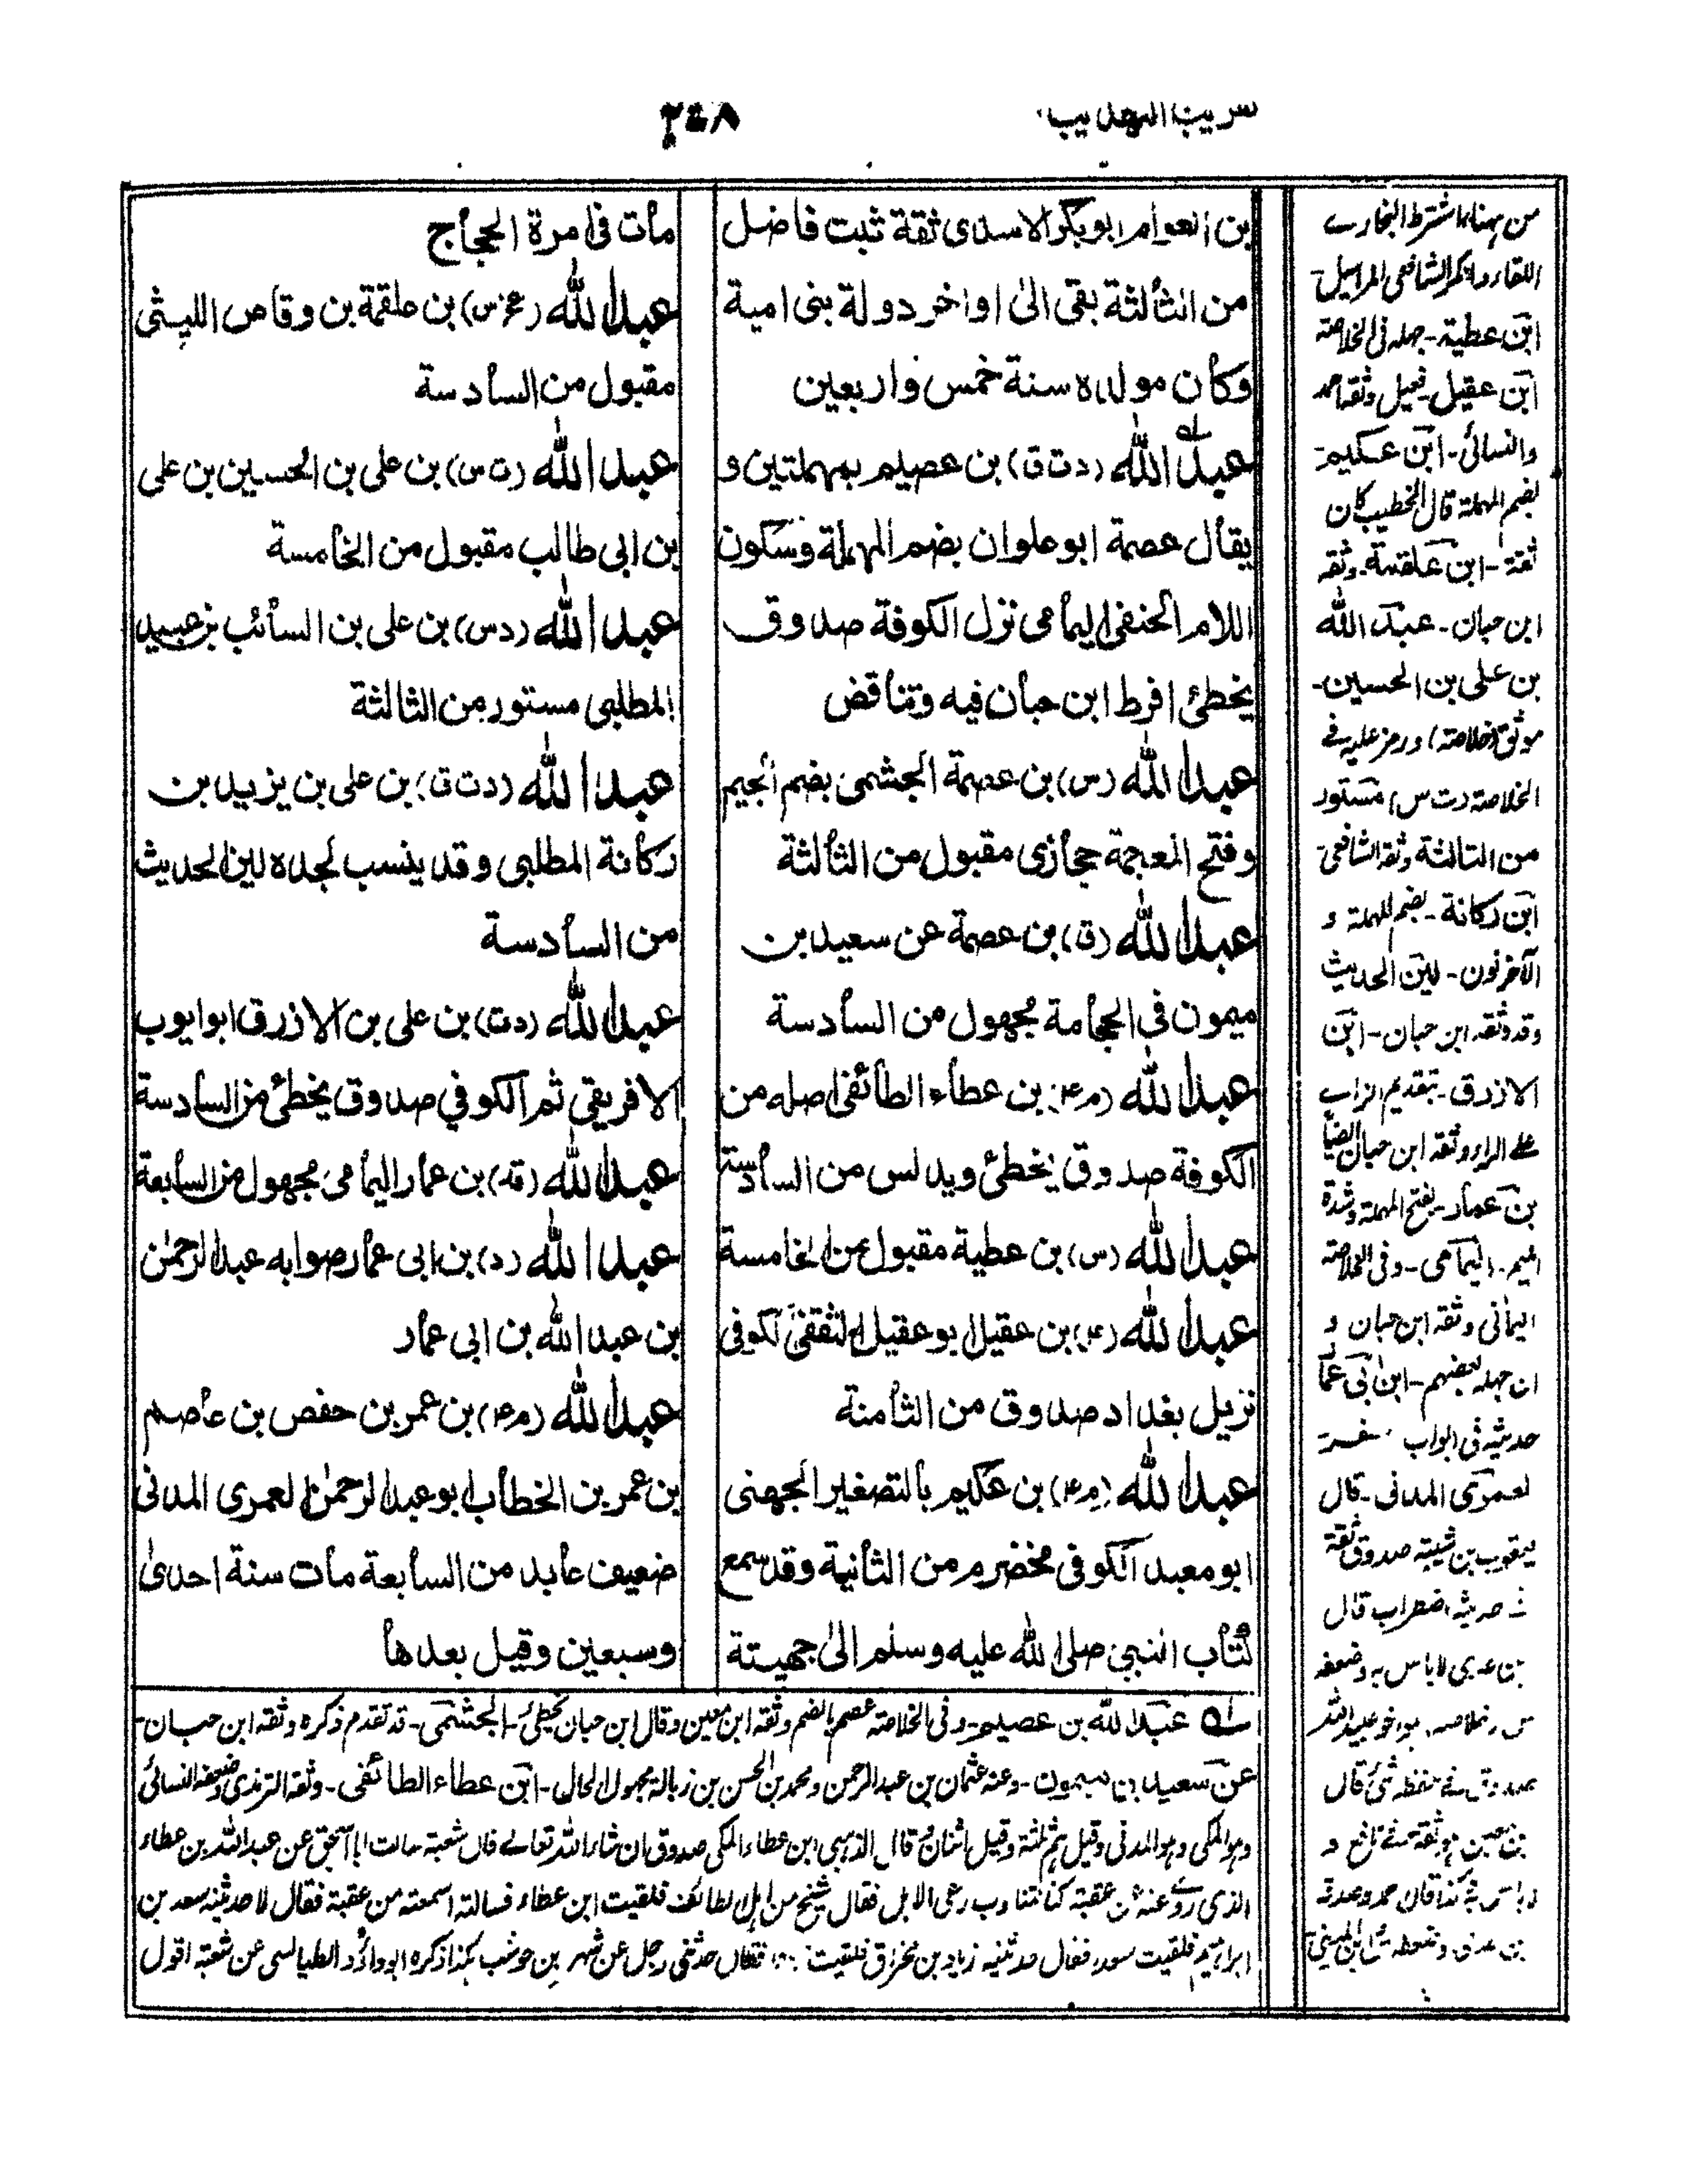 تقريب التهذيب
٢٤٨
بن العوام ابوبكر الاسدى ثقة ثبت فاضل
من الثالثة بقى الى اواخر دولة بنى امية
وكان مولده سنة خمس واربعين
عبد الله (د ت ق) بن عصيم بمهملتين و
يقال عصمة ابو علوان بضم المهملة وسكون
اللام الحنفى اليمامى نزل الكوفة صدوق
يخطئ افرط ابن حبان فيه وتناقض
عبد الله (س) بن عصمة الجشمى بضم الجيم
وفتح المعجمة حجازى مقبول من الثالثة
عبد الله (ق) بن عصمة عن سعيد بن
ميمون فى الحجامة مجهول من السادسة
عبد الله (م ٤) بن عطاء الطائفى اصله من
الكوفة صدوق يخطئ ويدلس من السادسة
عبد الله (س) بن عطية مقبول من الخامسة
عبد الله (٤) بن عقيل ابو عقيل الثقفى الكوفى
نزيل بغداد صدوق من الثامنة
عبد الله (م ٤) بن عكيم بالتصغير الجهنى
ابو معبد الكوفى مخضرم من الثانية وقد سمع
كتاب النبي صلى الله عليه وسلم الى جهينة
مات فى امرة الحجاج
عبد الله (عخ س) بن علقمة بن وقاص الليثى
مقبول من السادسة
عبد الله (ت س) بن على بن الحسين بن على
بن ابى طالب مقبول من الخامسة
عبد الله (د س) بن على بن السائب بن عبيد
المطلبى مستور من الثالثة
عبد الله (د ت ق) بن على بن يزيد بن
ركانة المطلبى وقد ينسب لجده لين الحديث
من السادسة
عبد الله (د ت) بن على بن الازرق ابو ايوب
الافريقى ثم الكوفي صدوق يخطئ من السادسة
عبد الله (قد) بن عمار اليمامى مجهول من السابعة
عبد الله (د) بن ابى عمار صوابه عبد الرحمن
بن عبد الله بن ابى عمار
عبد الله (م ٤) بن عمر بن حفص بن عاصم
بن عمر بن الخطاب ابو عبد الرحمن العمرى المدنى
ضعيف عابد من السابعة مات سنة احدى
وسبعين وقيل بعدها
من ههنا اشترط البخارى
اللقاء وانكر الشافعى المراسيل
ابن عطية - جهله فى الخلاصة
ابن عقيل - فعيل وثقه احمد
والنسائى - ابن عكيم
بضم المهملة قال الخطيب كان
ثقة - ابن علقمة - وثقه
ابن حبان - عبد الله
بن على بن الحسين -
موثق (خلاصة) ورمز عليه فى
الخلاصة (ت س) مستور
من الثالثة وثقه الشافعى
ابن ركانة - بضم المهملة و
الآخر نون - لين الحديث
وقد وثقه ابن حبان - ابن
الازرق - بتقديم الزاى
على الراء وثقه ابن حبان ايضا
بن عمار - بفتح المهملة وشدة
الميم - اليمامى - وفى الخلاصة
اليمانى وثقه ابن حبان و
ان جهله بعضهم - ابن ابى عما
حديثه فى ابواب
لعمرى المدنى - قال
يعقوب بن شيبة صدوق ثقة
حديثه اضطراب قال
بن عدى لا باس به وضعفه
اخو عبيد الله
صدوق فى حفظه شئ قال
بن معين هو ثقة فى نافع و
عبد الله بن عصيم - وفى الخلاصة عصم بالضم وثقه ابن معين وقال ابن حبان يخطئ - الجشمى - قد تقدم ذكره وثقه ابن حبان -
عن سعيد بن ميمون - وعنه عثمان بن عبد الرحمن ومحمد بن الحسن بن زبالة مجهول الحال - ابن عطاء الطائفى - وثقه الترمذى وضعفه النسائى
وهو المكى وهو المدنى وقيل هم ثلثة وقيل اثنان قال الذهبى ابن عطاء المكى صدوق ان شاء الله تعالى قال شعبة سالت ابا اسحق عن عبد الله بن عطاء
الذى روى عنه عن عقبة كنا نتناوب رعى الابل فقال شيخ من اهل الطائف فلقيت ابن عطاء فسالته اسمعته من عقبة فقال لا حدثنيه سعد بن
ابراهيم فلقيت سعدا فقال حدثنيه زياد بن مخراق فلقيت فقال حدثنى رجل عن شهر بن حوشب كذا ذكره ابو داؤد الطيالسى عن شعبة اقول